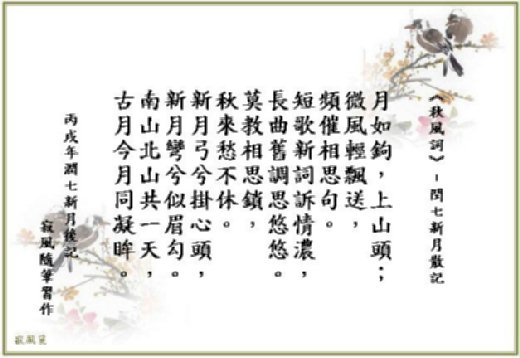 《秋風詞》－閏七新月散記
月如鉤，上山頭；
微風輕飄送，
頻催相思句。
短歌新詞訴情濃，
長曲舊調思悠悠。
莫教相思鎖，
秋來愁不休。
新月弓兮掛心頭，
新月彎兮似眉勾。
南山北山共一天，
古月今月同凝眸。
丙戌年潤七新月後記
寂風隨筆習作
寂風